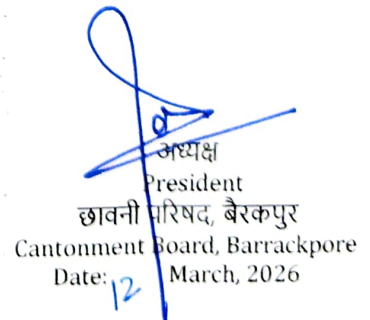 अध्यक्ष
President
छावनी परिषद, बैरकपुर
Cantonment Board, Barrackpore
Date: 12 March, 2026